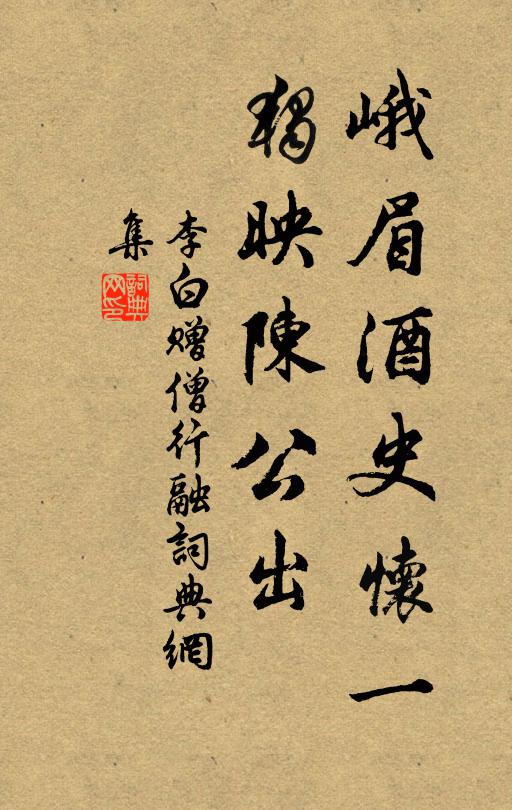 峨眉酒史懷一
獨映陳公出
李白贈僧行融詞典網
集
詞典
网印